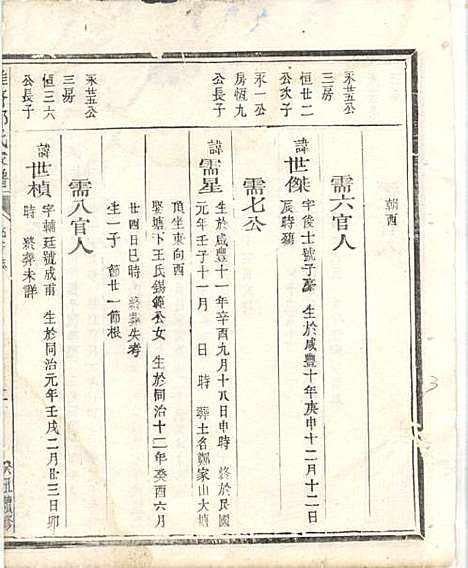 朝酉
永廿五公
三房
恒廿二
公次子
需六官人
諱世傑 字俊士號子 生於咸豐十年庚申十二月十二日
辰時
永一公
房恆九
公長子
需七公
諱需星 生於咸豐十一年辛酉九月十八日申時 終於民國
元年壬子十一月 日 時 葬土名鄭家山大塘
頂坐東向酉
娶塘下王氏錫範公女 生於同治十二年癸酉六月
廿四日巳時 終葬失考
生一子 節廿一節根
永廿五公
三房
恒三六
公長子
需八官人
諱世楨 字輔廷號成甫 生於同治元年壬戌二月廿三日卯
時 葬未詳